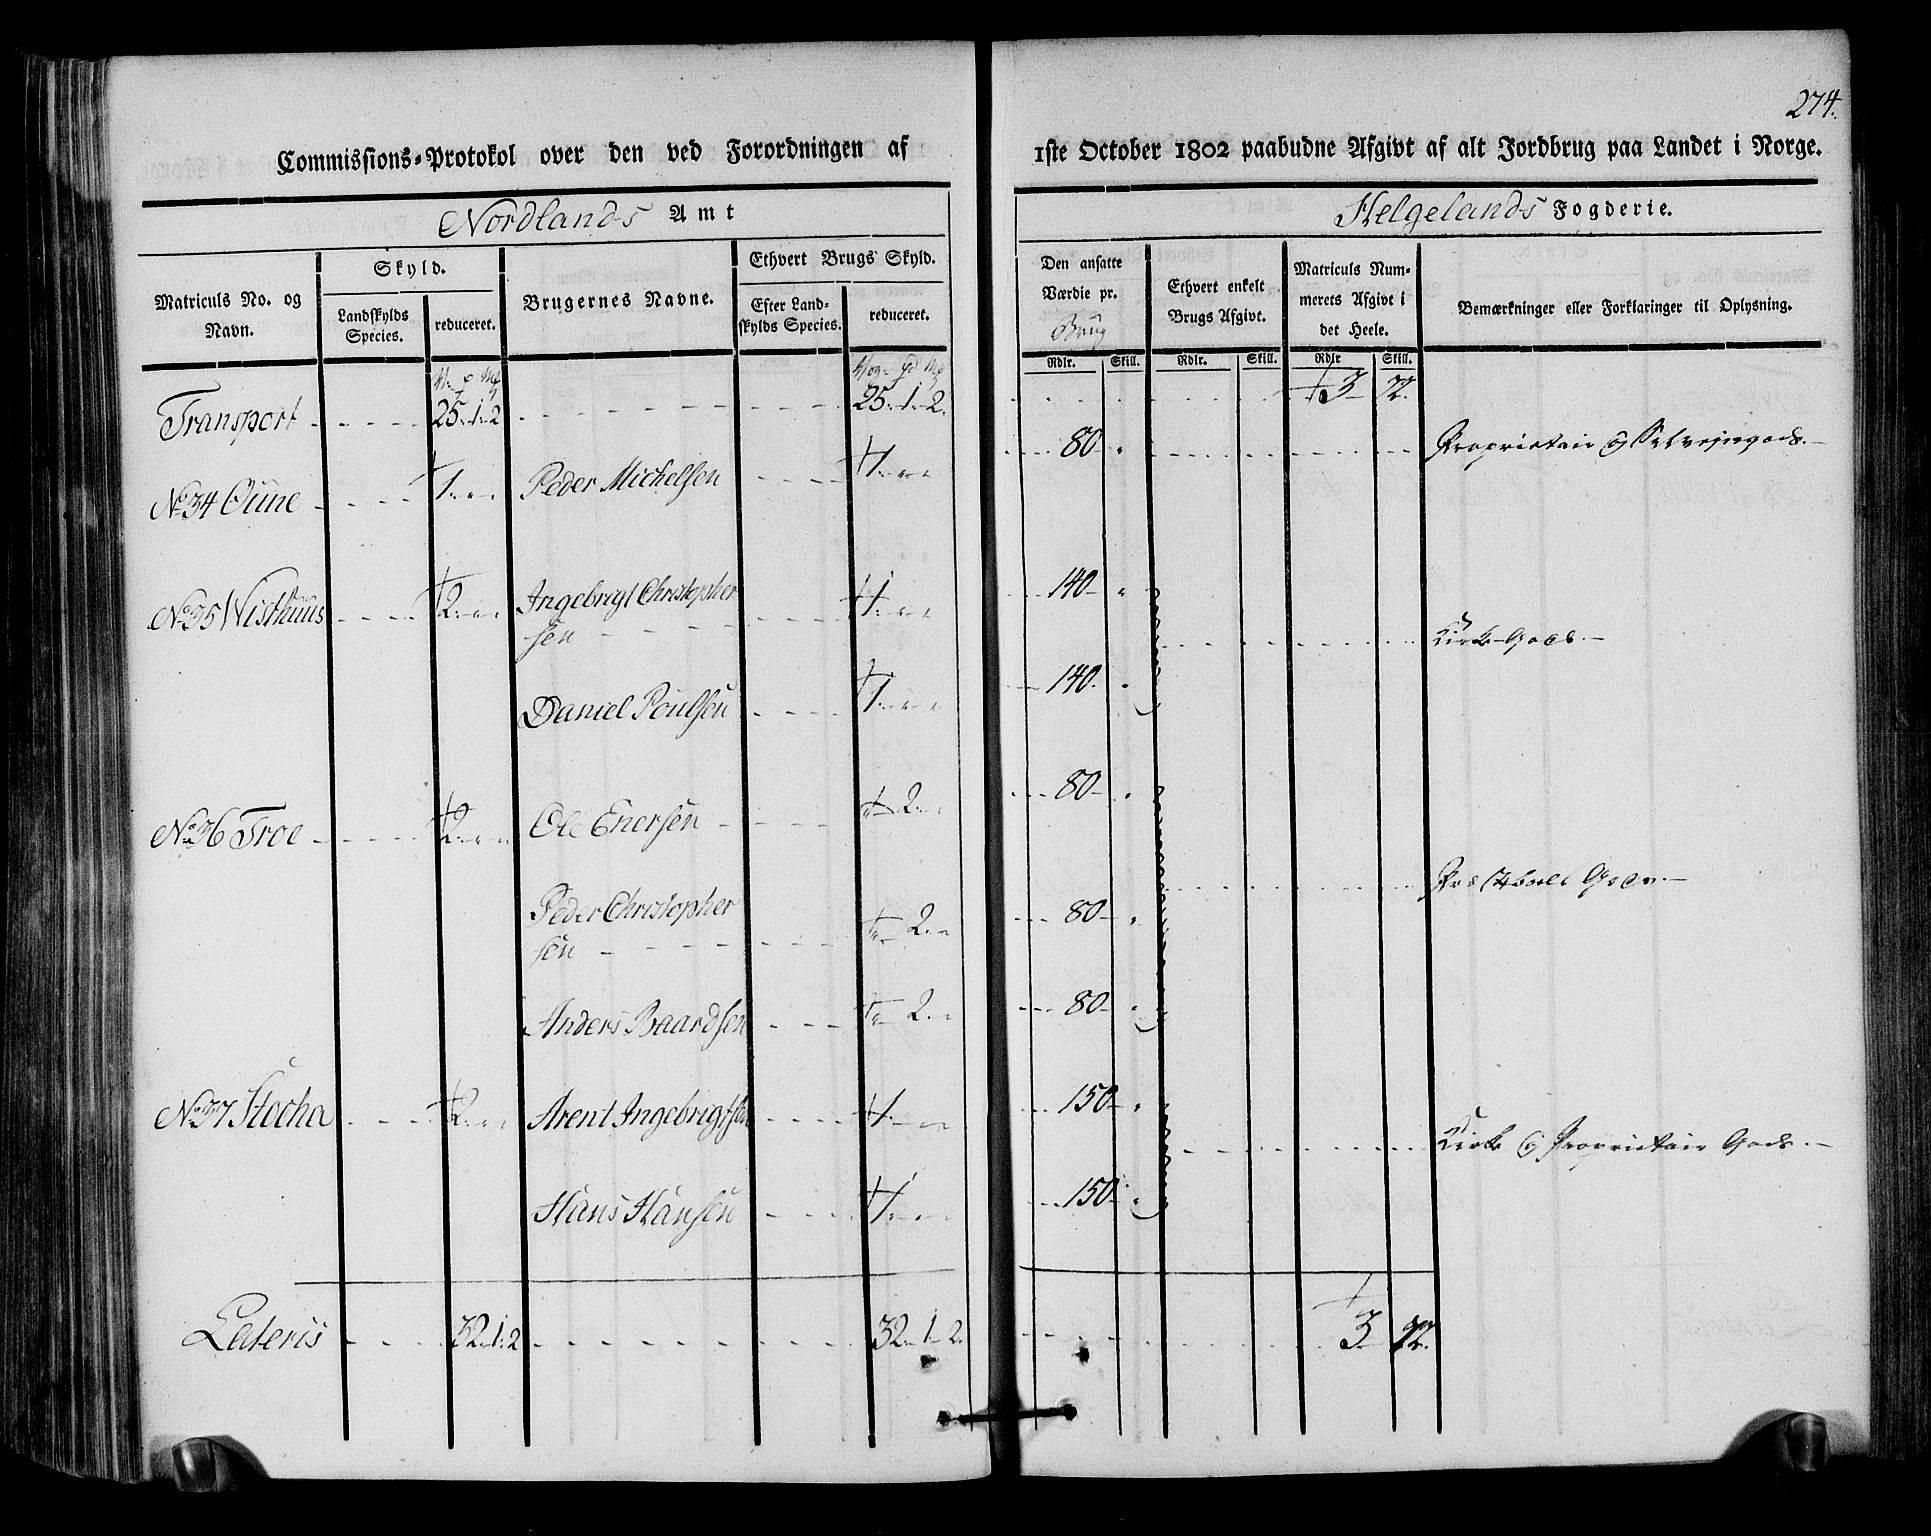 274.
Commissions-Protokol over den ved Forordningen af 1ste October 1802 paabudne Afgivt af alt Jordbrug paa Landet i Norge.
Nordlands Amt
Helgelands Fogderie.
Matriculs No. og Navn.
Skyld.
Landskylds Species.
reduceret.
Brugernes Navne.
Ethvert Brugs Skyld.
Efter Landskylds Species.
reduceret.
Den ansatte Værdie pr. Brug
Ethvert enkelt Brugs Afgivt.
Matriculs Nummerets Afgivt i det Heele.
Bemærkninger eller Forklaringer til Oplysning.
Rdlr. Skill. Rdlr. Skill. Rdlr Skill.
Transport - - - - 25.-1.-2 - - - - 25.-1.-2. - - - - 3 72.
No 34 Oune - - - 1.-"-" Peder Michelsen - - - 1.-"-" - - 80- " - - - Proprietair og Selvejergods.-
No 35 Wisthuus - - - 2.-"-" Ingebrigt Christopher - - - 1.-"-" 140- "
sen - - - Kirke-Gods.-
Daniel Poulsen - - - 1.-"-" 140. "
No 36 Troe - - - 2.-"-" Ole Enersen - - - "- 2.-" 80- "
Præstebole Gods.-
Peder Christopher
sen - - - "- 2.-" 80- "
Anders Baardsen - - - "- 2.-" 80- "
No 37 Stocha - - - 2.-"-" Arent Ingebrigtsen - - - 1.-"-" 150- "
Kirke og Proprietair Gods.-
Hans Hansen - - - 1.-"-" 150- "
Lateris - - - 32.-1.-2 - - - - 32.-1-2. - - - 3 72.